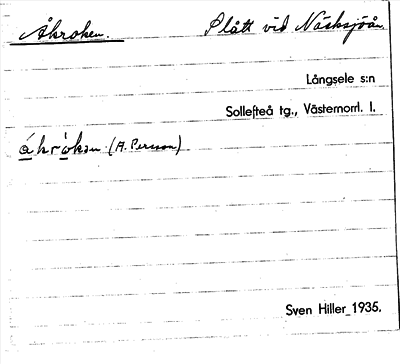 Åkroken. Slått vid Näcksjöån.
Långsele s:n
Sollefteå tg., Västernorrl. l.
åkròkən (A. Persson)
Sven Hiller 1935.